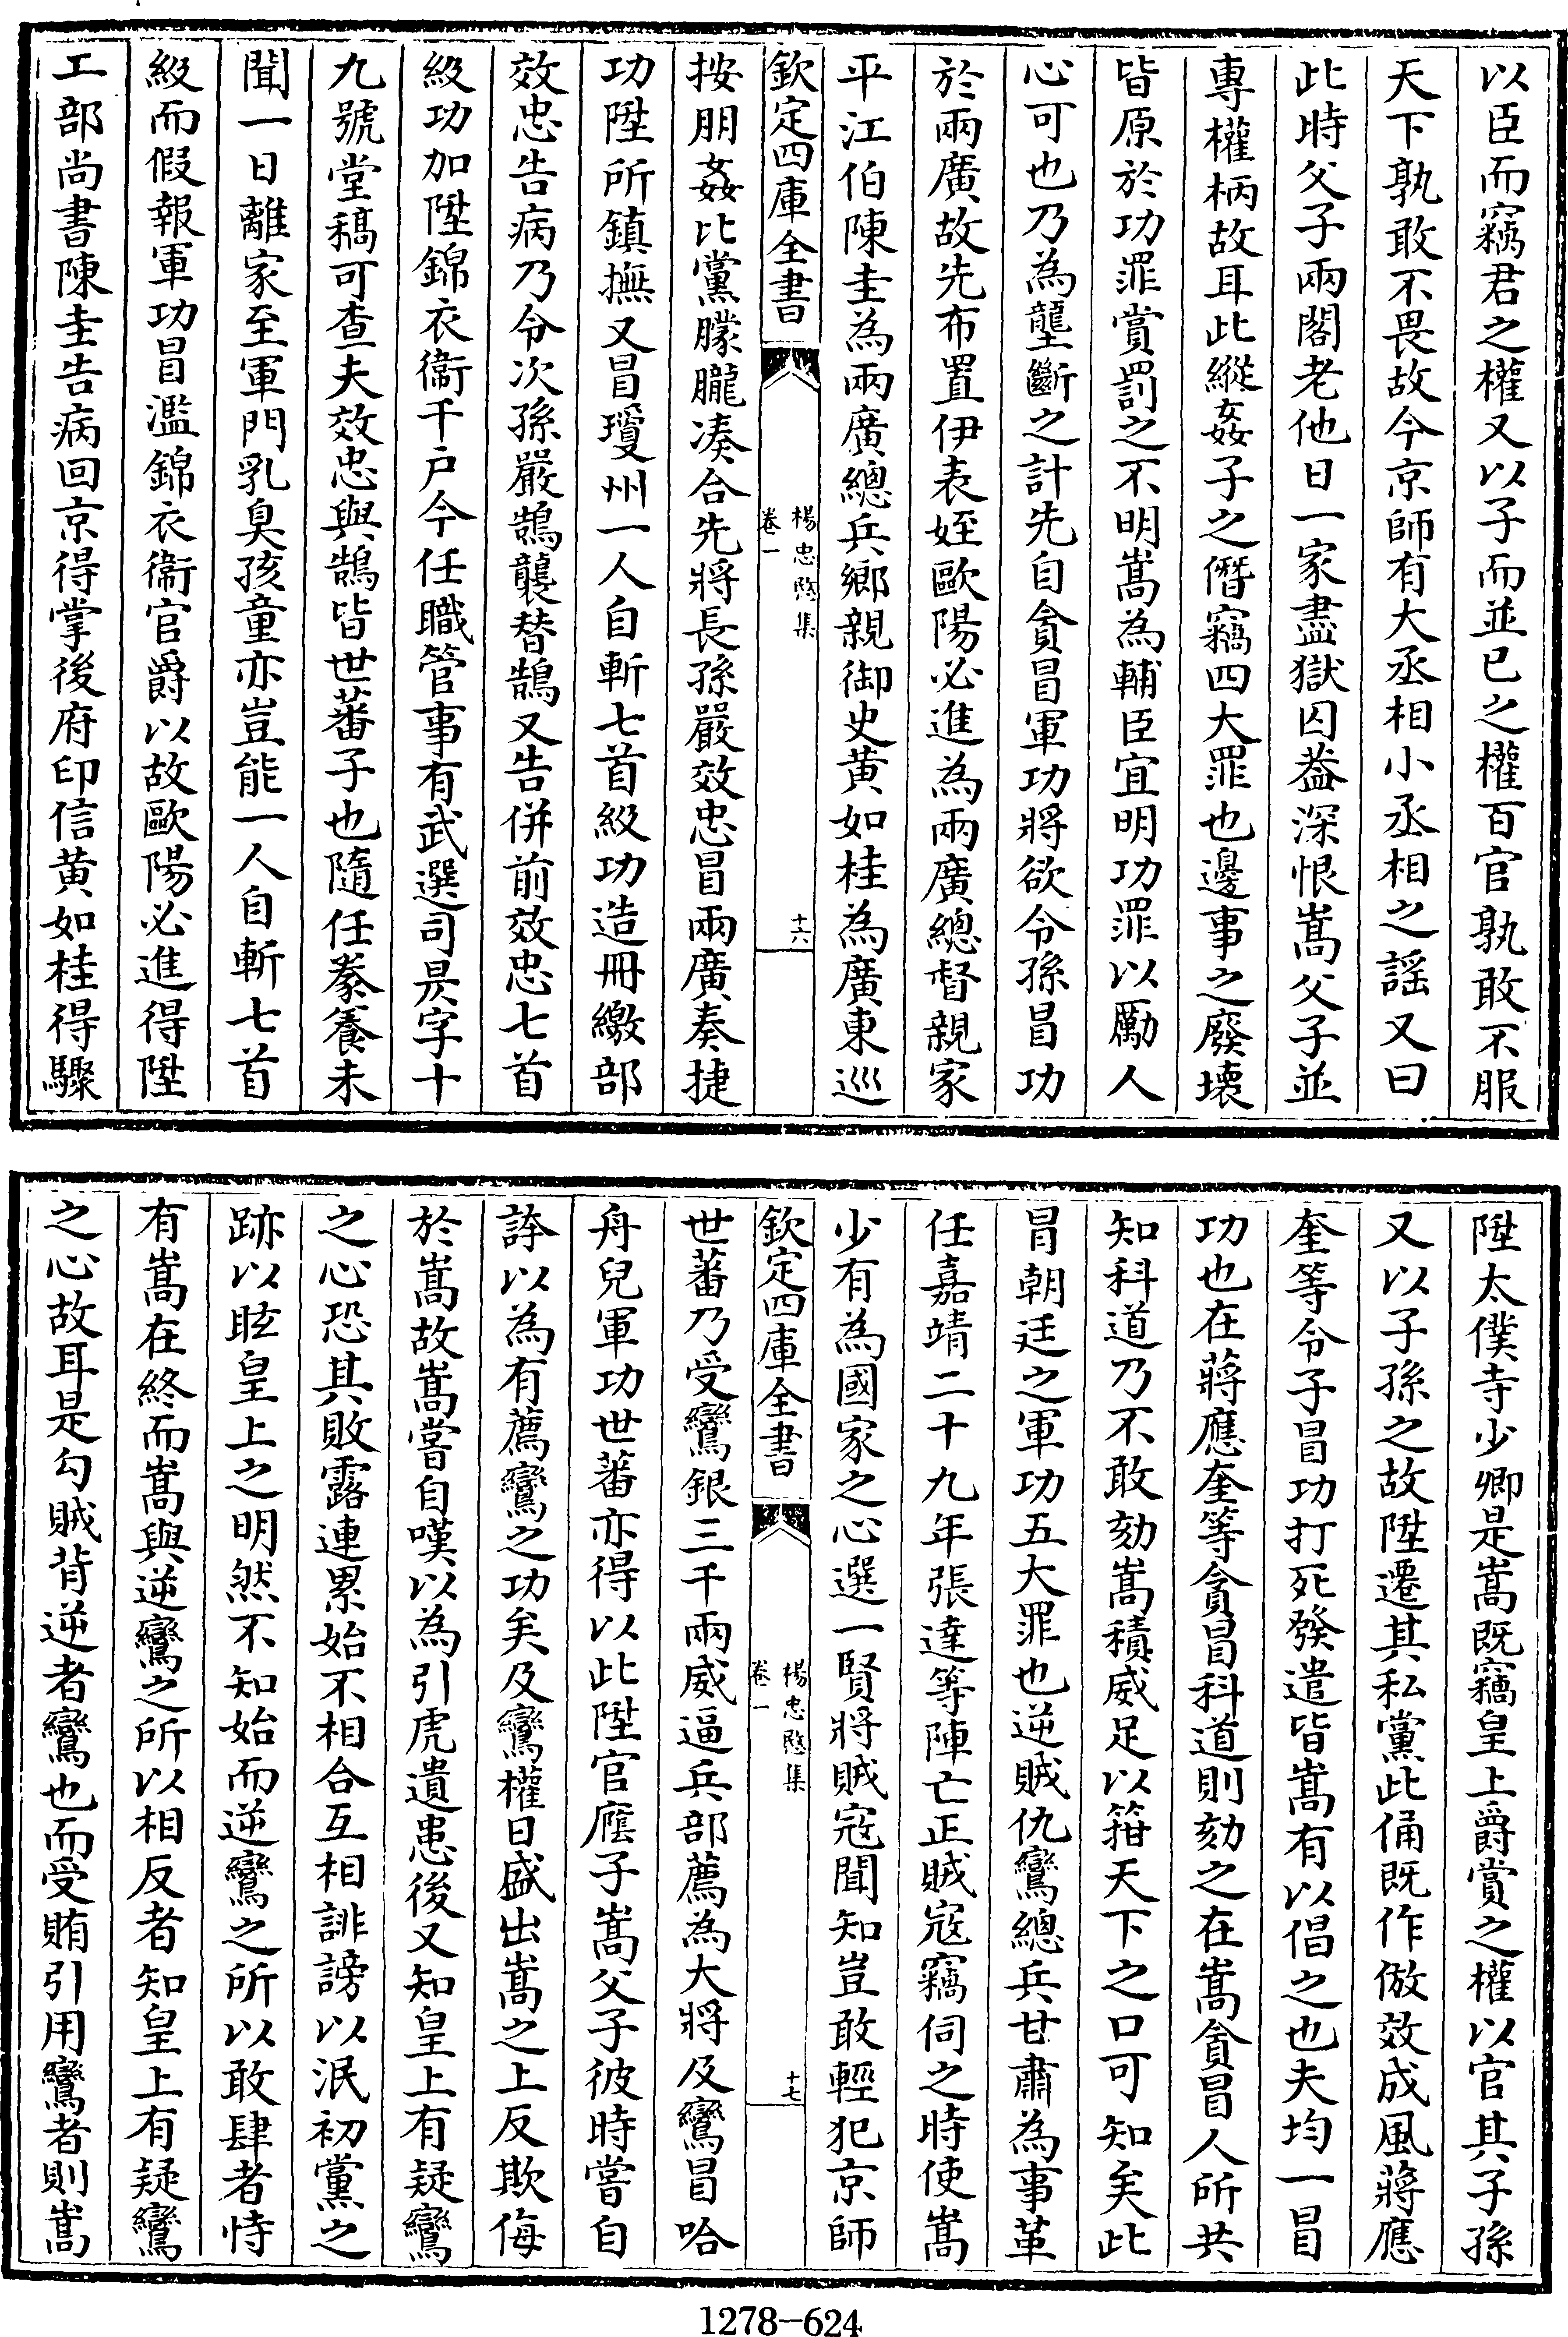 以臣而竊君之權又以子而並已之權百官孰敢不服
天下孰敢不畏故今京師有大丞相小丞相之謡又曰
此時父子兩閣老他日一家盡獄囚葢深恨嵩父子並
專權柄故耳此縱姦子之僭竊四大罪也邊事之廢壊
皆原於功罪賞罰之不明嵩為輔臣宜明功罪以勵人
心可也乃為壟斷之計先自貪冒軍功將欲令孫冒功
於兩廣故先布置伊表姪歐陽必進為兩廣總督親家
平江伯陳圭為兩廣總兵鄉親御史黄如桂為廣東巡
欽定四庫全書
楊忠愍集
卷一
十六
按朋姦比黨朦朧凑合先將長孫嚴效忠冒兩廣奏捷
功陞所鎮撫又冒瓊州一人自斬七首級功造冊繳部
效忠告病乃令次孫嚴鵠襲替鵠又告併前效忠七首
級功加陞錦衣衞千户今任職管事有武選司昃字十
九號堂稿可查夫效忠與鵠皆世蕃子也隨任豢養未
聞一日離家至軍門乳臭孩童亦豈能一人自斬七首
級而假報軍功冒濫錦衣衞官爵以故歐陽必進得陞
工部尚書陳圭告病回京得掌後府印信黄如桂得驟
陞太僕寺少卿是嵩既竊皇上爵賞之權以官其子孫
又以子孫之故陞遷其私黨此俑既作倣效成風蔣應
奎等令子冒功打死發遣皆嵩有以倡之也夫均一冒
功也在蔣應奎等貪冒科道則劾之在嵩貪冒人所共
知科道乃不敢劾嵩積威足以箝天下之口可知矣此
冒朝廷之軍功五大罪也逆賊仇鸞總兵甘肅為事革
任嘉靖二十九年張達等陣亡正賊寇竊伺之時使嵩
少有為國家之心選一賢將賊寇聞知豈敢輕犯京師
欽定四庫全書
楊忠愍集
卷一
十七
世蕃乃受鸞銀三千兩威逼兵部薦為大將及鸞冒哈
舟兒軍功世蕃亦得以此陞官廕子嵩父子彼時嘗自
誇以為有薦鸞之功矣及鸞權日盛出嵩之上反欺侮
於嵩故嵩嘗自嘆以為引虎遺患後又知皇上有疑鸞
之心恐其敗露連累始不相合互相誹謗以泯初黨之
跡以眩皇上之明然不知始而逆鸞之所以敢肆者恃
有嵩在終而嵩與逆鸞之所以相反者知皇上有疑鸞
之心故耳是勾賊背逆者鸞也而受賄引用鸞者則嵩
1278-624